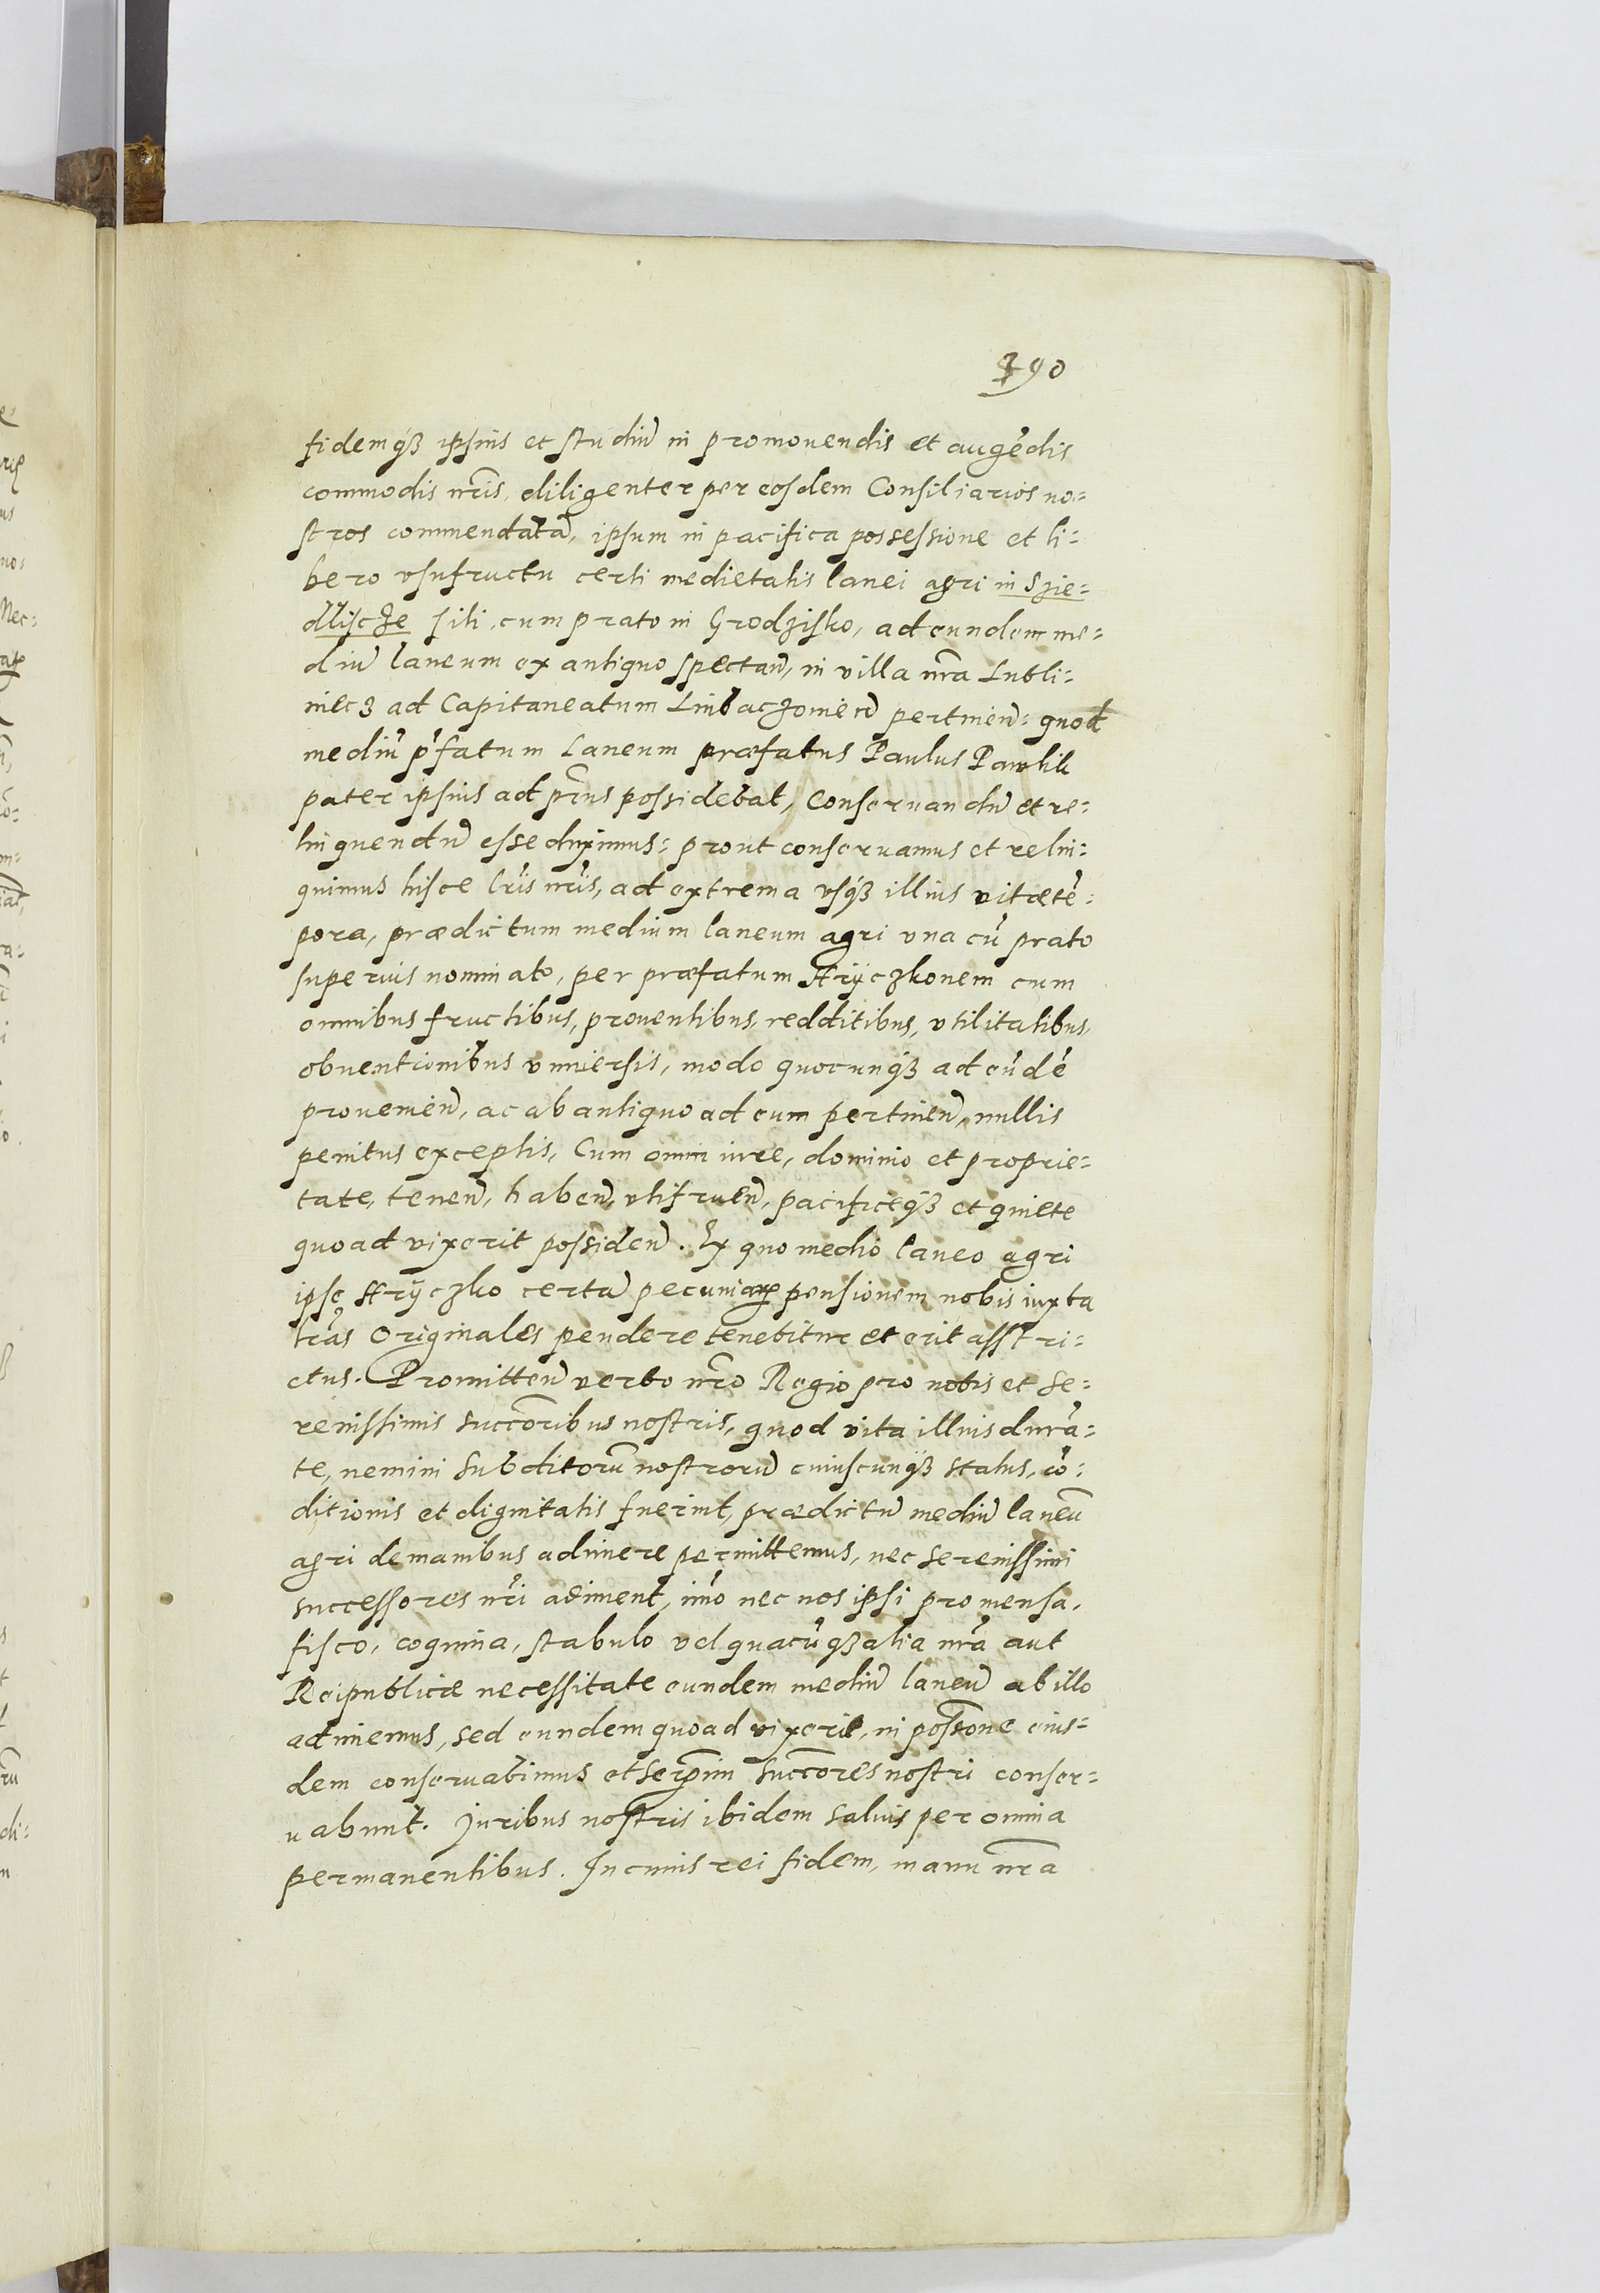 390
fidemqȝ ipsius et studiū in promouendis et augēdis
commodis nr̄is, diligenter per eosdem Consiliarios no=
stros commendatā, ipsum in pacifica possessione et li=
bero vsufructu certi medietatis lanei agri in Szie=
dlliscze siti, cum prato in Grodzisko, ad eundem me=
diū laneum ex antiquo spectan̄, in villa nr̄a Lubli=
niecz ad Capitaneatum Lubaczouien̄ pertinen̄: quod
mediū p̄fatum Laneum præfatus Paulus Pawlik
pater ipsius ad pr̄ns possidebat, Conseruandū et re=
linquendū esse duximus: prout conseruamus et relin=
quimus hisce lr̄is nr̄is, ad extrema vsqȝ illius vitæ tē=
pora, prædictum medium laneum agri vna cū prato
superius nominato, per præfatum Hryczkonem cum
omnibus fructibus, prouentibus, redditibus, vtilitatibus,
obuentionibus vniuersis, modo quocunqȝ ad eūdē
prouenien̄, ac ab antiquo ad eum pertinen̄, nullis
penitus exceptis, Cum omni iure, dominio et proprie=
tate, tenen̄, haben̄, vtifruen̄, pacificeqȝ et quiete
quoad vixerit possiden̄. Ex quo medio laneo agri
ipse Hryczko certā pecuniarꝝ pensionem nobis iuxta
lr̄as Originales pendere tenebitur et erit asstri=
ctus. Promitten̄ verbo nr̄o Regio pro nobis et Se=
renissimis succ̄oribus nostris, quod vita illius durā=
te, nemini Subditorū nostrorū cuiuscunqȝ status, cō=
ditionis et dignitatis fuerint, prædictū mediū laneū
agri de manibus adimere permittemus, nec Serenissimi
successores nr̄i adiment, imō nec nos ipsi pro mensa,
fisco, coquina, stabulo vel quacūqȝ alia nr̄a aut
Reipublicæ necessitate eundem mediū laneū ab illo
adimemus, sed eundem quoad vixerit, in poss̄one eius=
dem conseruabimus et Ser̄mi Succ̄ores nostri conser=
uabunt. Juribus nostris ibidem saluis per omnia
permanentibus. In cuius rei fidem, manu nr̄a